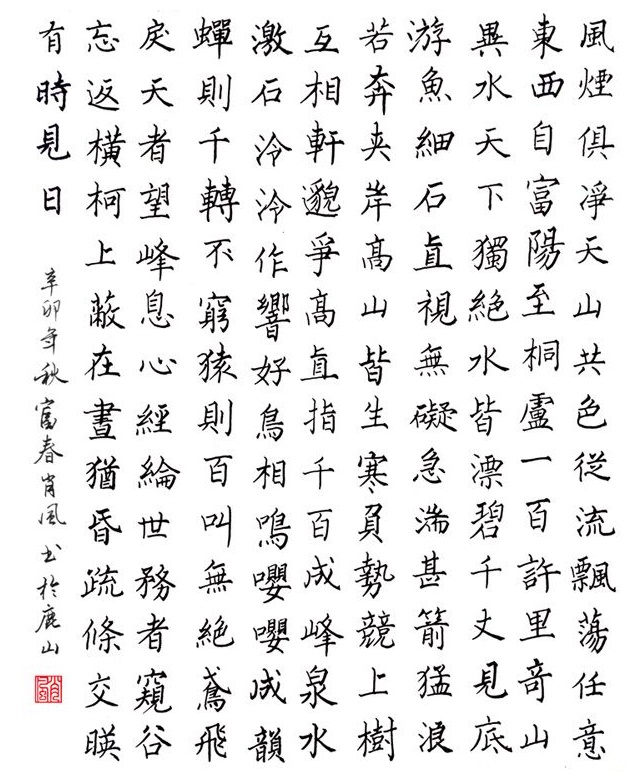 風煙俱淨天山共色從流飄蕩任意
東西自富陽至桐廬一百許里奇山
異水天下獨絕水皆漂碧千丈見底
游魚細石直視無礙急湍甚箭猛浪
若奔夾岸高山皆生寒負勢競上樹
互相軒邈爭高直指千百成峰泉水
激石泠泠作響好鳥相鳴嚶嚶成韻
蟬則千轉不窮猿則百叫無絕鳶飛
戾天者望峰息心經綸世務者窺谷
忘返橫柯上蔽在晝猶昏疏條交暎
有時見日
辛卯年秋富春肖風书於鹿山